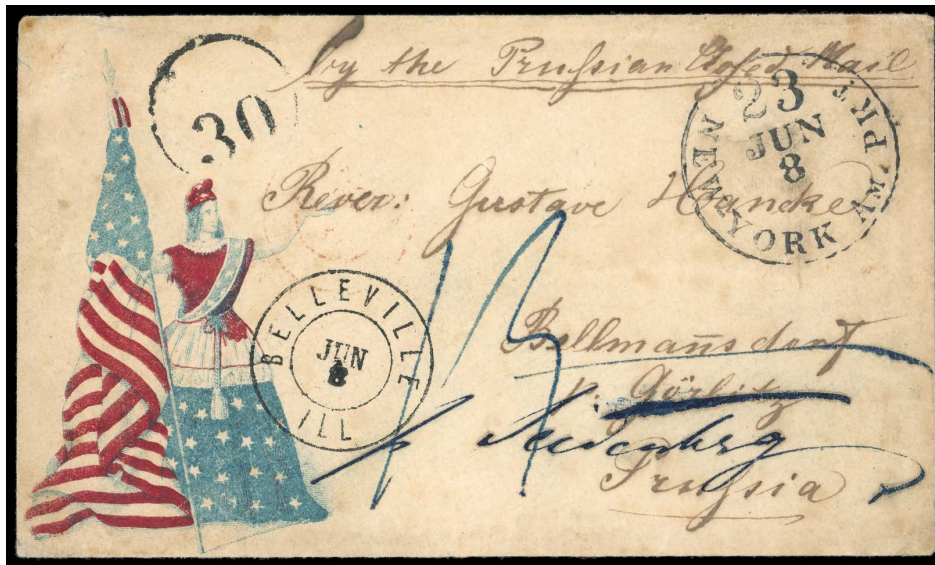 by the Prussian Closed Mail
30
23
JUN
8
NEW YORK AM. PKT.
Rever: Gustave Hoancke
BELLEVILLE
JUN
8
ILL
13
Bellmansdorf
p: Görlitz
p Seidenberg
Prussia